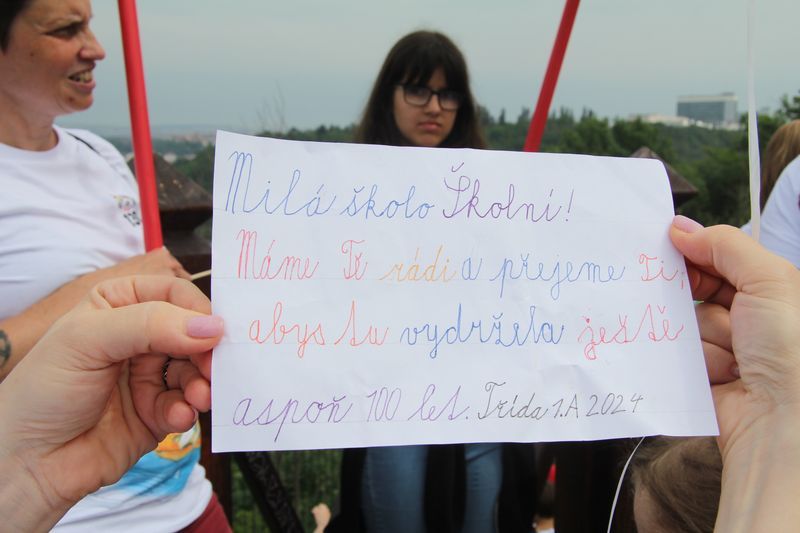 Milá školo Školní!
Máme Tě rádi a přejeme Ti,
abys tu vydržela ještě
aspoň 100 let. Třída 1.A 2024